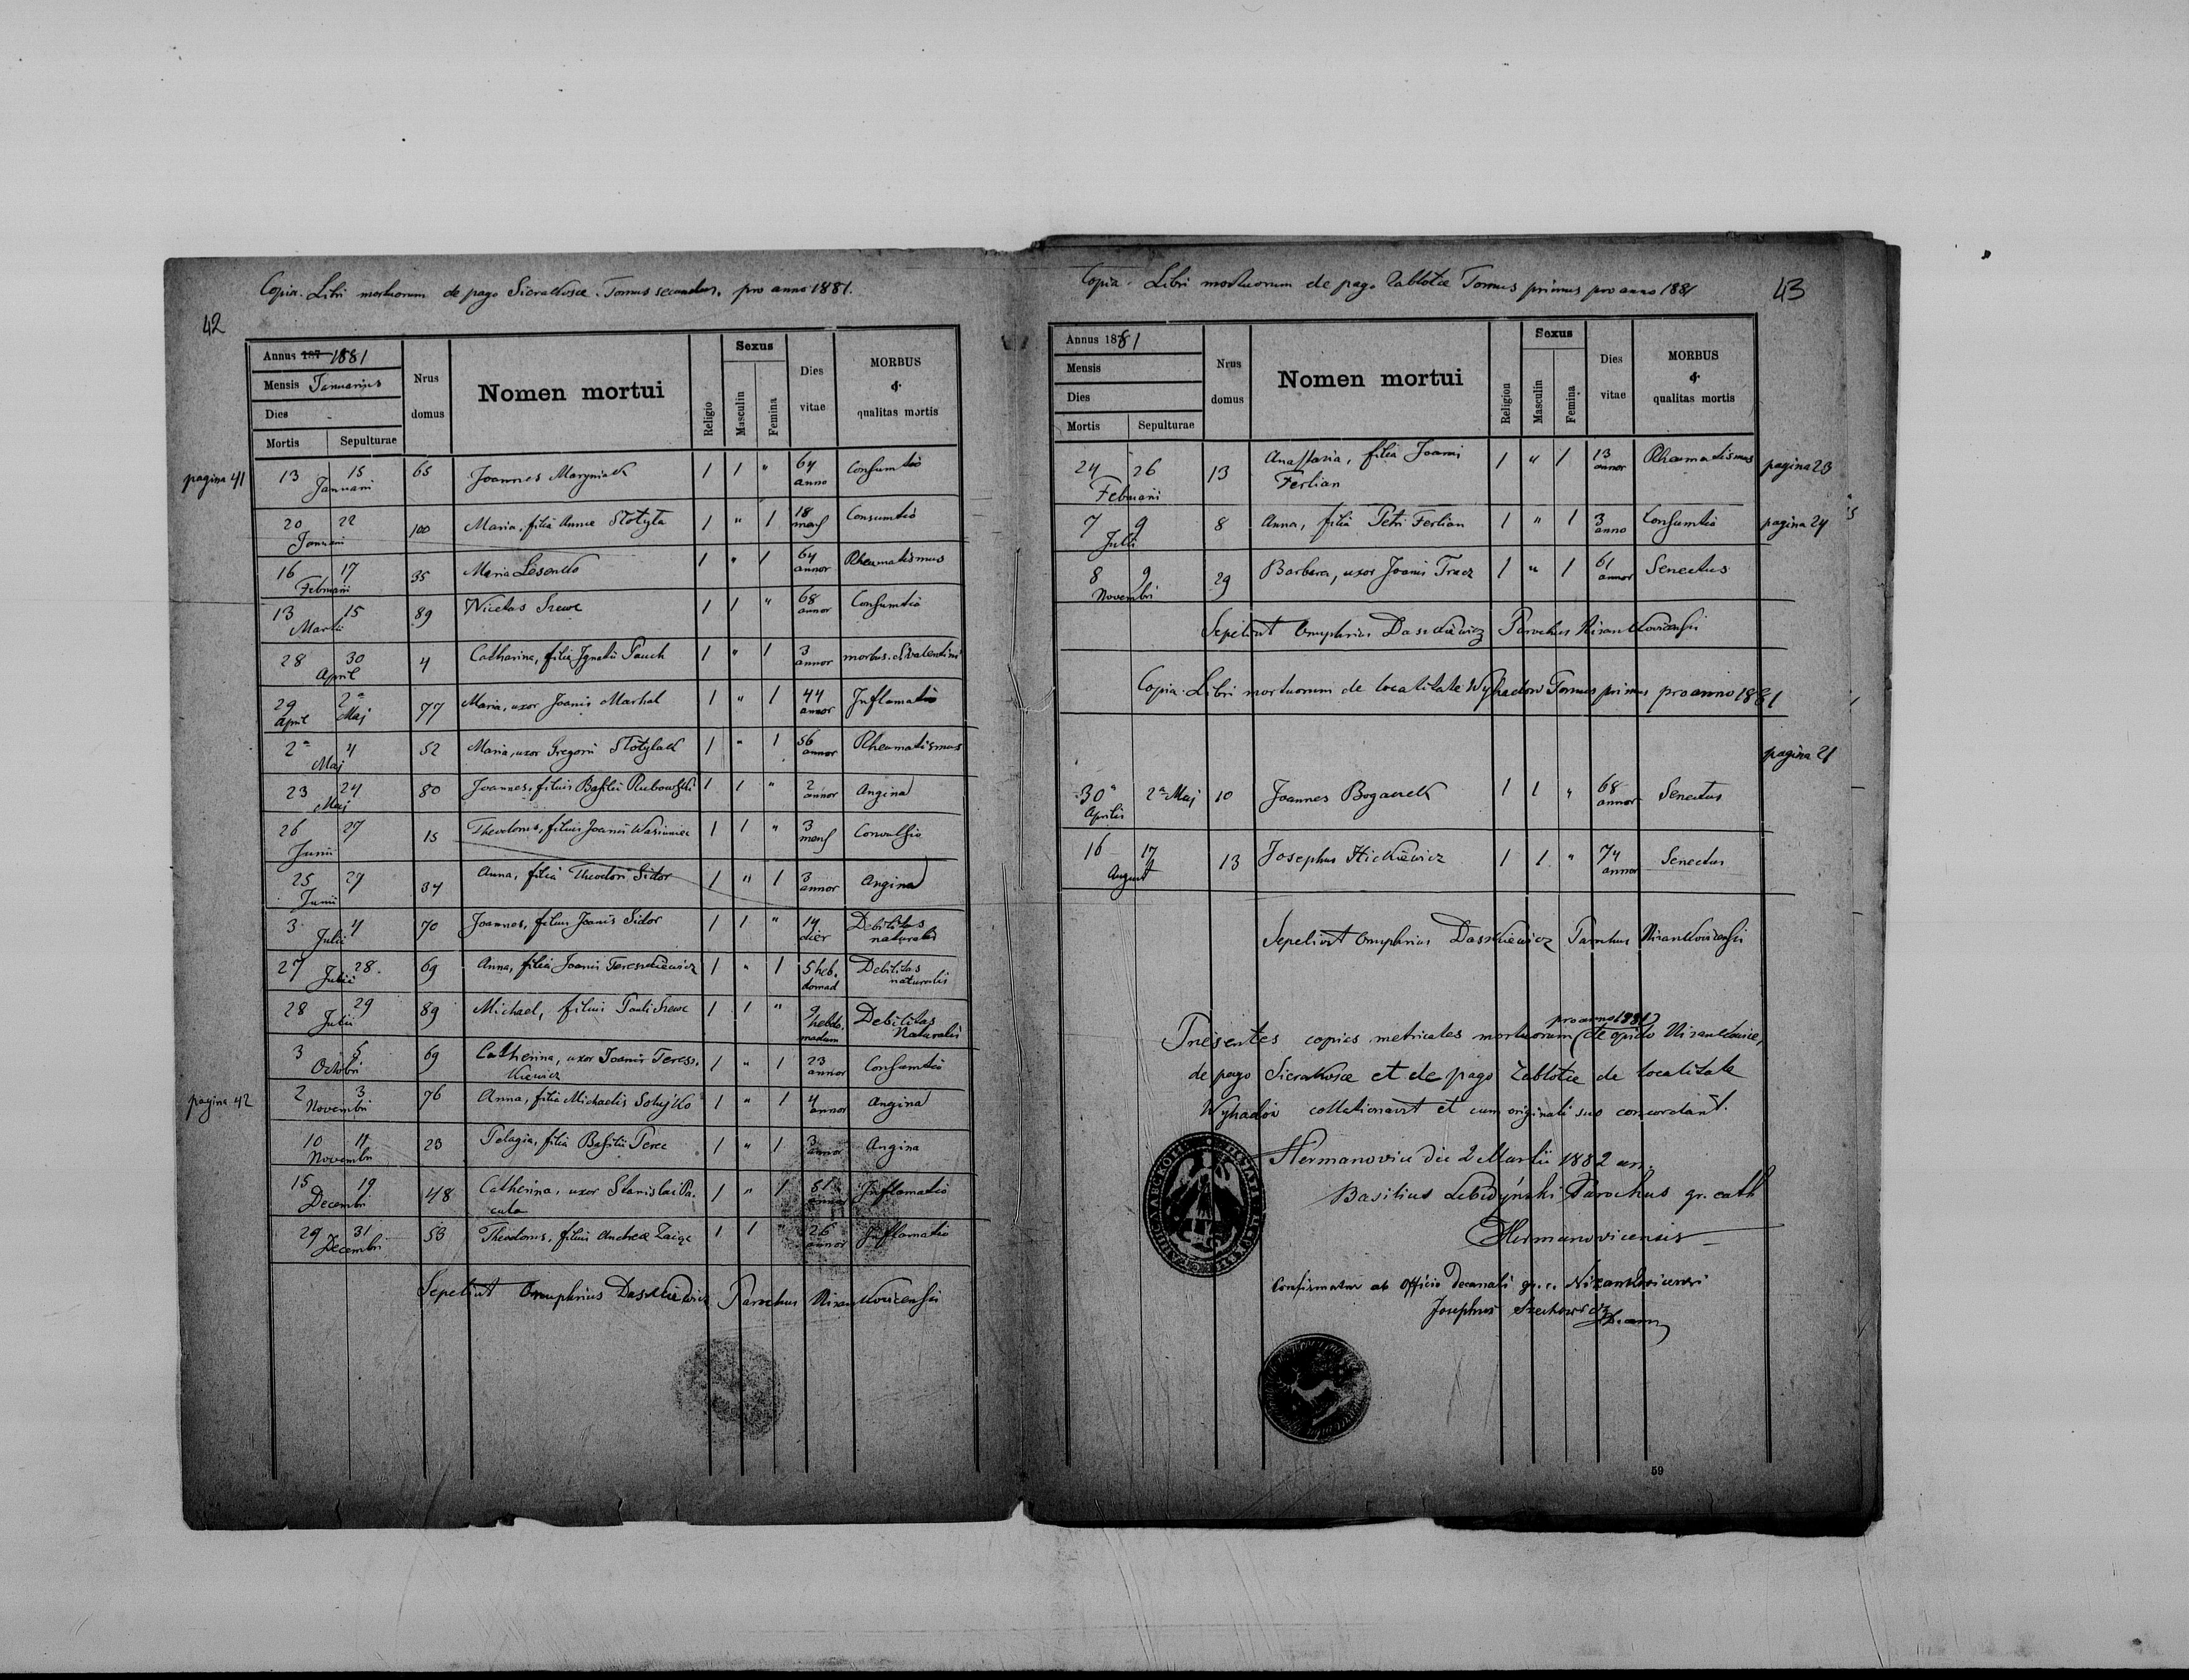 Copia. Libri mortuorum de pago Sierakosce. Tomus secundus. pro anno 1881.
42
Annus 187 1881
Mensis Januarius
Dies
Mortis Sepulturae
Nrus domus
Nomen mortui
Religio
Sexus
Masculin
Femina
Dies vitae
MORBUS
&
qualitas mortis
pagina 41
13 15 Januarii 65 Joannes Maryniak 1 1 " 64 anno Consumtio
20 22 Januarii 100 Maria, filia Annae Slotyla 1 " 1 18 mens Consumtio
16 17 Februarii 35 Maria 1 " 1 64 annor Rheumatismus
13 15 Martii 89 Nicetas Szewc 1 1 " 68 annor Consumtio
28 30 April 4 Catharina, filia Ignatii Pauch 1 " 1 3 annor morbus. S. Valentini
29 April 2a Maj 77 Maria, uxor Joanis Marhal 1 " 1 44 annor Inflamatio
2a 4 Maj 52 Maria, uxor Gregorii Slotylak 1 " 1 56 annor Rheumatismus
23 24 Maj 80 Joannes, filius Basilii Rubowski 1 1 " 2 annor Angina
26 27 Junii 15 Theodorus, filius Joanis 1 1 " 3 mens Convulsio
25 27 Junii 34 Anna, filia Theodori Sidor 1 " 1 3 annor Angina
3 4 Julii 70 Joannes, filius Joanis Sidor 1 1 " 14 dier Debilitas
naturalis
27 28. Julii 69 Anna, filia Joanis Tereszkiewicz 1 " 1 5 heb.
domad Debilitas
naturalis
28 29 Julii 89 Michael, filius Pauli Szewc 1 1 " 9 hebdo.
madum Debilitas
Naturalis
3 5 Octobri 69 Catherina, uxor Joanis Teresz.
kiewicz 1 " 1 23 annor Consumtio
pagina 42
2 3 Novembri 76 Anna, filia Michaelis Solujko 1 " 1 4 annor Angina
10 11 Novembri 23 Pelagia, filia Basilii Perec 1 " 1 3 annor Angina
15 19 Decembri 48 Catherina, uxor Stanislai Pa.
cula 1 " 1 81 annor Inflamatio
29 31 Decembri 53 Theodorus, filius Andreae Zaigc 1 1 " 26 annor Inflamatio
Sepelivit Onuphrius Daszkiewicz Parochus Nizankovicensis
Copia. Libri mortuorum de pago Zablotce Tomus primus pro anno 1881
43
Annus 1881
Mensis
Dies
Mortis Sepulturae
Nrus domus
Nomen mortui
Religion
Sexus
Masculin
Femina
Dies vitae
MORBUS
&
qualitas mortis
24 26 Februarii 13 Anastasia, filia Joanni
Ferlian 1 " 1 13 annor Rheumatismus pagina 23
7 9 Julii 8 Anna, filia Petri Ferlian 1 " 1 3 anno Consumtio pagina 24
8 9 Novembri 29 Barbara, uxor Joanis Tracz 1 " 1 61 annor Senectus
Sepelivit Onuphrius Daszkiewicz Parochus Nizankovicensis
Copia. Libri mortuorum de localitate Wyhadow Tomus primus pro anno 1881
pagina 21
30a Aprilis 2a Maj 10 Joannes 1 1 " 68 annor Senectus
16 17 August 13 Josephus Hickiewicz 1 1 " 74 annor Senectus
Sepelivit Onuphrius Daszkiewicz Parochus Nizankovicensis
pro anno 1881
Presentes copies metricales mortuorum de opido Nizankowice,
de pago Sierakosce et de pago Zablotce de localitate
Wyhadow collationavit et cum originali suo concordant.
Hermanovice die 2 Martii 1882 an.
Basilius Lebedyński Parochus gr. cath
Hermanovicensis
Confirmatur ab Officio Decanali gr. c. Nizankoviciensi
Josephus
59